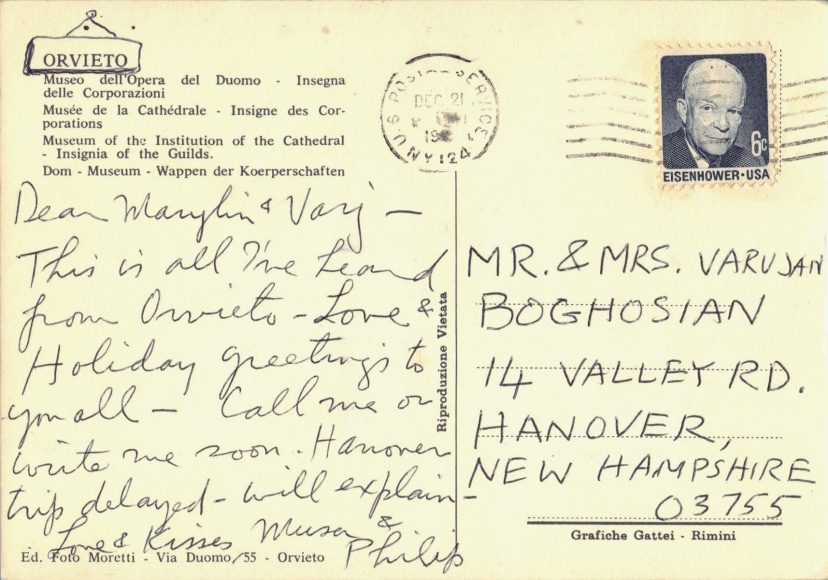 ORVIETO
Museo dell'Opera del Duomo - Insegna
delle Corporazioni
Musée de la Cathédrale - Insigne des Cor-
porations
Museum of the Institution of the Cathedral
- Insignia of the Guilds.
Dom - Museum - Wappen der Koerperschaften
Dear Marylin & Varj —
This is all I've heard
from Orvieto - Love &
Holiday greetings to
you all — Call me or
write me soon. Hanover
trip delayed - will explain -
Love & Kisses Musa &
Philip
Ed. Foto Moretti - Via Duomo, 55 - Orvieto
Riproduzione Vietata
U.S. POSTAL SERVICE
DEC 21
NY 124
6c
EISENHOWER·USA
MR. & MRS. VARUJAN
BOGHOSIAN
14 VALLEY RD.
HANOVER,
NEW HAMPSHIRE
03755
Grafiche Gattei - Rimini